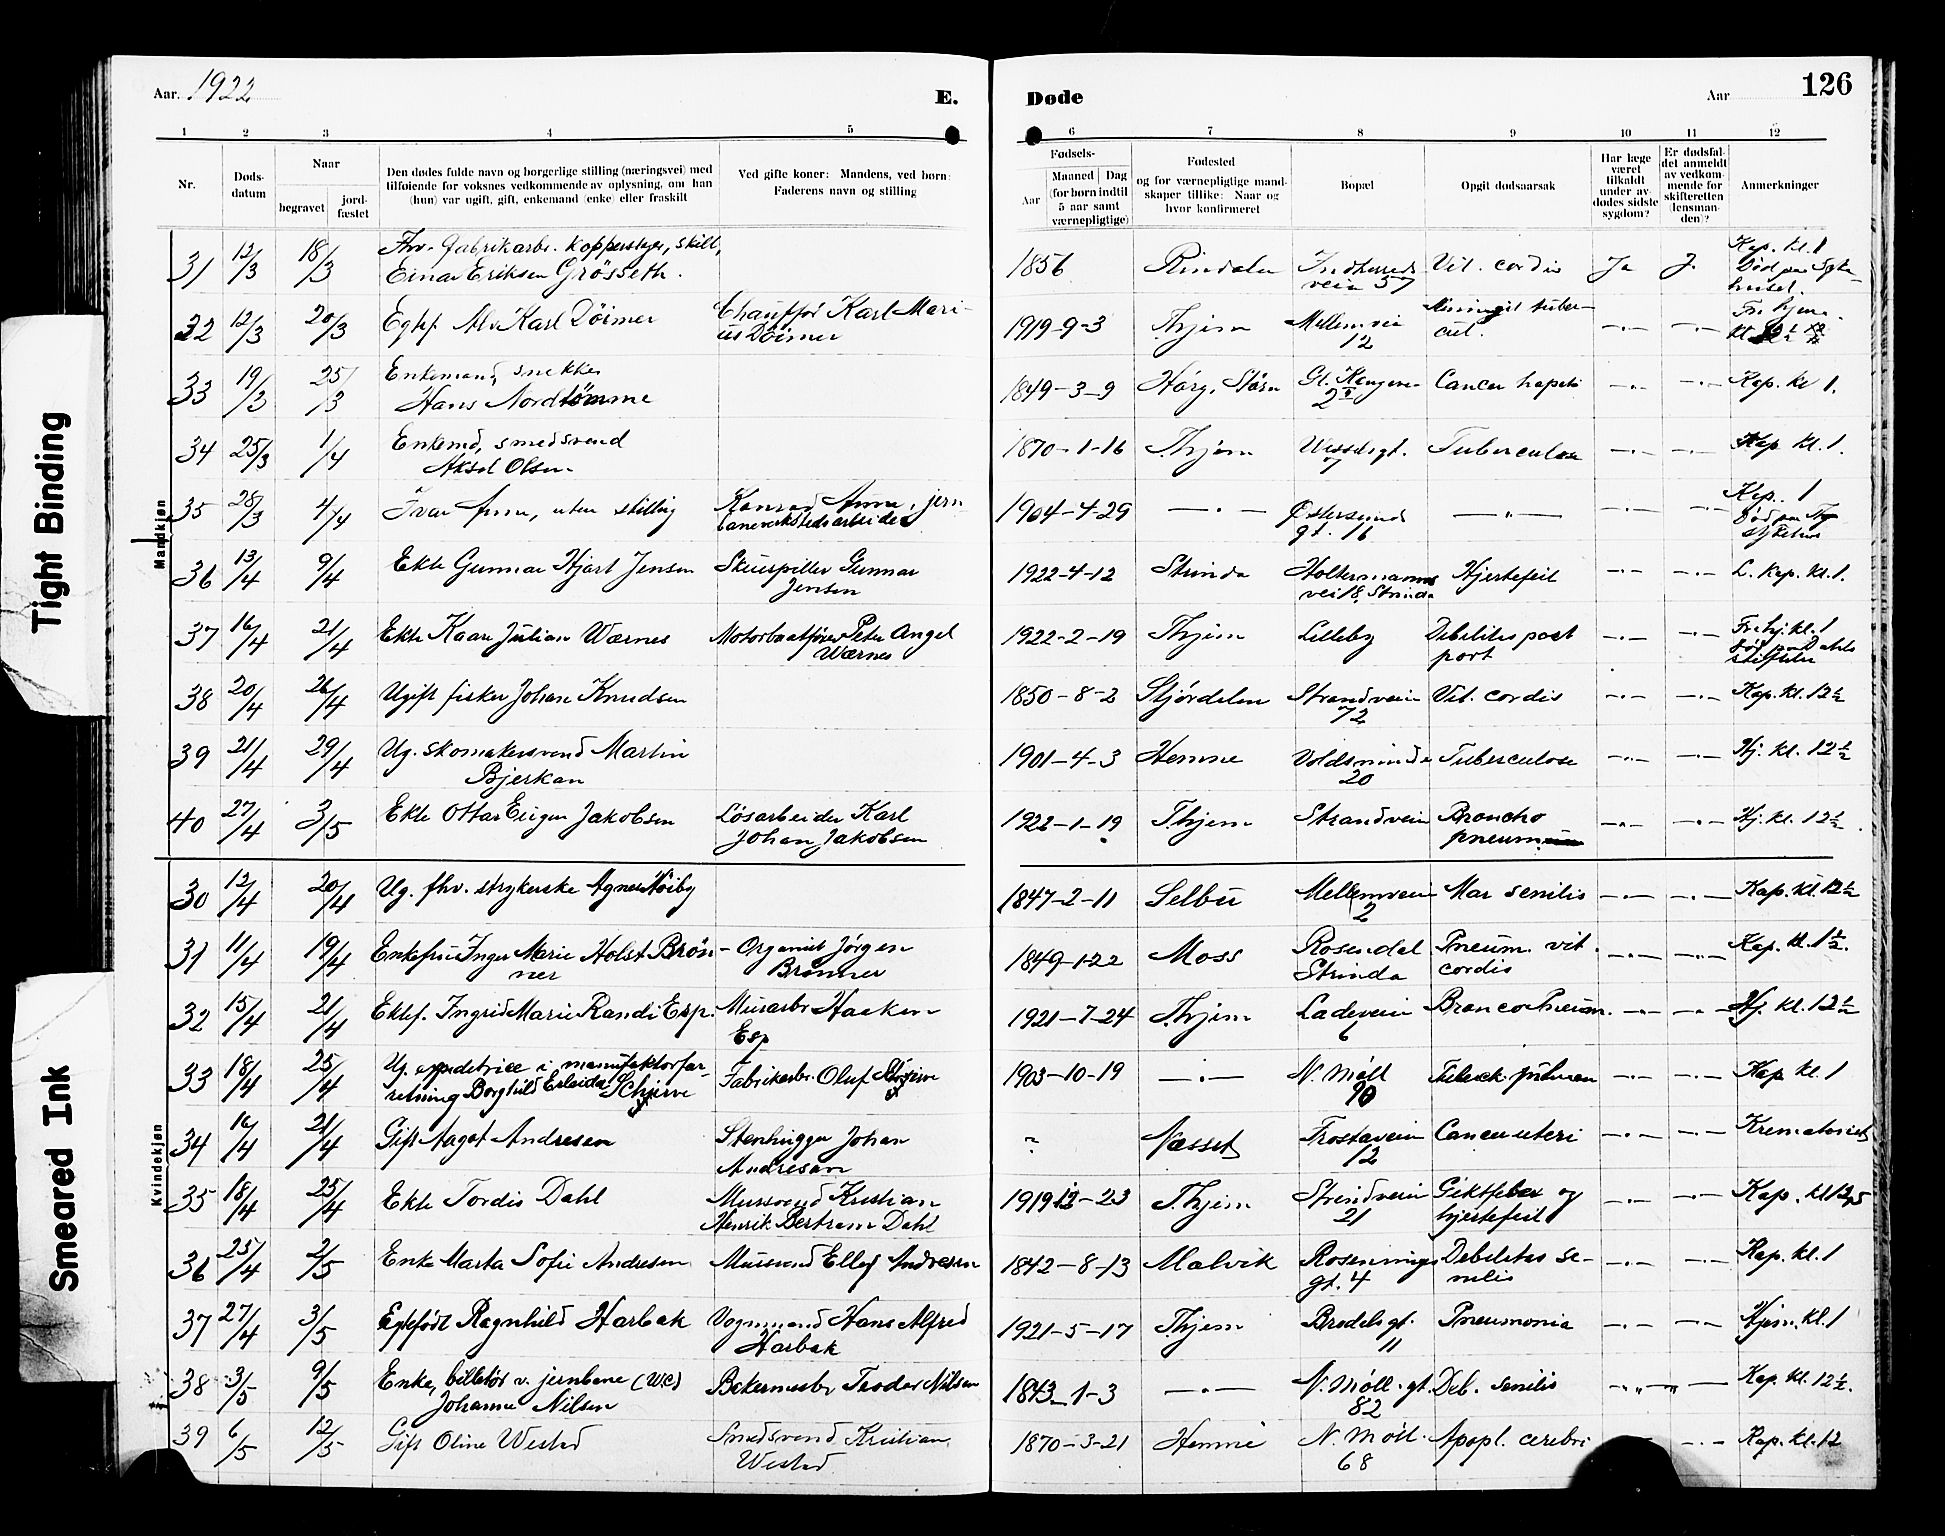 Aar. 1922
E.
Døde
Aar
126
1 2 3 4 5 6 7 8 9 10 11 12
Nr.
Døds-
datum
Naar
begravet
jord-
fæstet
Den dødes fulde navn og borgerlige stilling (næringsvei) med
tilføiende for voksnes vedkommende av oplysning, om han
(hun) var ugift, gift, enkemand (enke) eller fraskilt
Ved gifte koner: Mandens, ved børn:
Faderens navn og stilling
Fødsels-
Aar
Maaned Dag
(for børn indtil
5 aar samt
værnepligtige)
Fødested
og for værnepligtige mand-
skaper tillike: Naar og
hvor konfirmeret
Bopæl
Opgit dødsaarsak
Har læge
været
tilkaldt
under av-
dødes sidste
sygdom?
Er dødsfal-
det anmeldt
av vedkom-
mende for
skifteretten
(lensman-
den)?
Anmerkninger
Mandkjøn
31 12/3 18/3 Fhv. fabrikarb. kopperslager, skilt,
Einar Eriksen Grösseth.
1856 Rindalen Indherreds
veien 57 Vit. cordis Ja J. Kap. kl. 1
Død paa Syke-
huset.
32 12/3 20/3 Egtef. Karl Döimer Chauffør Karl Mari-
us Döimer
1919-9-3 Thjem Mellemvei
12 Meningit tuber-
cul. -"- -"- Fr. hjem.
33 19/3 25/3 Enkemand, snekker
Hans Nordtömme
1849-3-9 Hörg, Stören Cancer hepatis -"- -"- Kap. kl 1.
34 25/3 1/4 Enkemd, smedsvend
Aksel Olsen
1870-1-16 Thjem Wesselsgt.
7 Tuberculose -"- -"- Kap kl. 1.
35 28/3 4/4 Ivar Anne, uten stilling Konrad Anne, jern
baneverkstedsarbeider
1904-4-29 -"- Østersunds
gt. 16 -"- -"- -"- Kap. 1
død paa
sykehus
36 13/4 9/4 Ekte Gunnar Hjart Jensen Skuespiller Gunnar
Jensen
1922-4-12 Strinda Holtermanns
vei 18, Strinda Hjertefeil -"- -"- L. kap. kl. 1.
37 16/4 21/4 Ekte Kaare Julian Wærnes Motorbaatfører Peter Angel
Wærnes
1922-2-19 Thjem Lilleby Debilitas post
port -"- -"- Fr. hj. kl. 1
død paa Dahls
stiftelse
38 20/4 26/4 Ugift fisker Johan Knudsen
1850-8-2 Stjørdalen Strandveien
72 Vit. cordis -"- -"- Kap. kl. 12½
39 21/4 29/4 Ug. skomakersvend Martin
Bjerkan
1901-4-3 Hemne Voldsminde
20 Tuberculose -"- -"- Hj. kl. 12½
40 27/4 3/5 Ekte Ottar Eugen Jakobsen Løsarbeider Karl
Johan Jakobsen
1922-1-19 Thjem Strandveien Broncho
pneumonie -"- -"- Hj. kl. 12½
Kvindekjøn
30 12/4 20/4 Ug. fhv. strykerske Agnes Høiby
1847-2-11 Selbu Mellemveien
2 Mar senilis -"- -"- Kap. kl. 12½
31 11/4 19/4 Enkefrue Inger Marie Holst Brön-
ner - Organist Jörgen
Brönner
1849-1-22 Moss Rosendal
Strinda Pneum. vit.
cordis -"- -"- Kap. kl. 1½.
32 15/4 21/4 Ektef. Ingrid Marie Randi Esp. Murarb. Haakon
Esp
1921-7-24 Thjem Ladeveien
6 Broncopneum. -"- -"- Hj. kl. 12½
33 18/4 25/4 Ug. expeditrice i manufakturfor-
retning Borghild Erleida Schjerve Fabrikarb. Oluf Skjerve
1903-10-19 -"- N. Møll
90 Tuberk. pulmon -"- -"- Kap kl. 1
34 16/4 21/4 Gift Aagot Andresen Stenhugger Johan
Andresen
? Næsset Frostaveien
12 Cancer uteri -"- -"- Krematoriet
35 18/4 25/4 Ekte Tordis Dahl Mursvend Kristian
Henrik Bertram Dahl
1919-12-23 Thjem Strindveien
21 Giktfeber og
hjertefeil -"- -"- Kap. kl 12,15
36 25/4 2/5 Enke Marta Sofie Andresen Mursvend Ellef Andresen
1842-8-13 Malvik Rosenborgs
gt. 4 Debilitas se-
nilis -"- -"- Kap. kl. 1
37 27/4 3/5 Egtefødt Ragnhild Harbak Vognmand Hans Alfred
Harbak
1921-5-17 Thjem Brødelsgt.
11 Pneumonia -"- -"- Hjem. kl. 1
38 3/5 9/5 Enke, billetør v. jernbane (W.C.)
Johanne Nilsen Bakermester Teodor Nilsen
1843-1-3 -"- N. Møll. gt
82 Deb. senilis -"- -"- Kap. kl. 12½.
39 6/5 12/5 Gift Oline Westad Smedsvend Kristian
Westad
1870-3-21 Hemne N. Møll.
68 Apopl. cerebri -"- Kap. kl. 12
Tight Binding
Smeared Ink